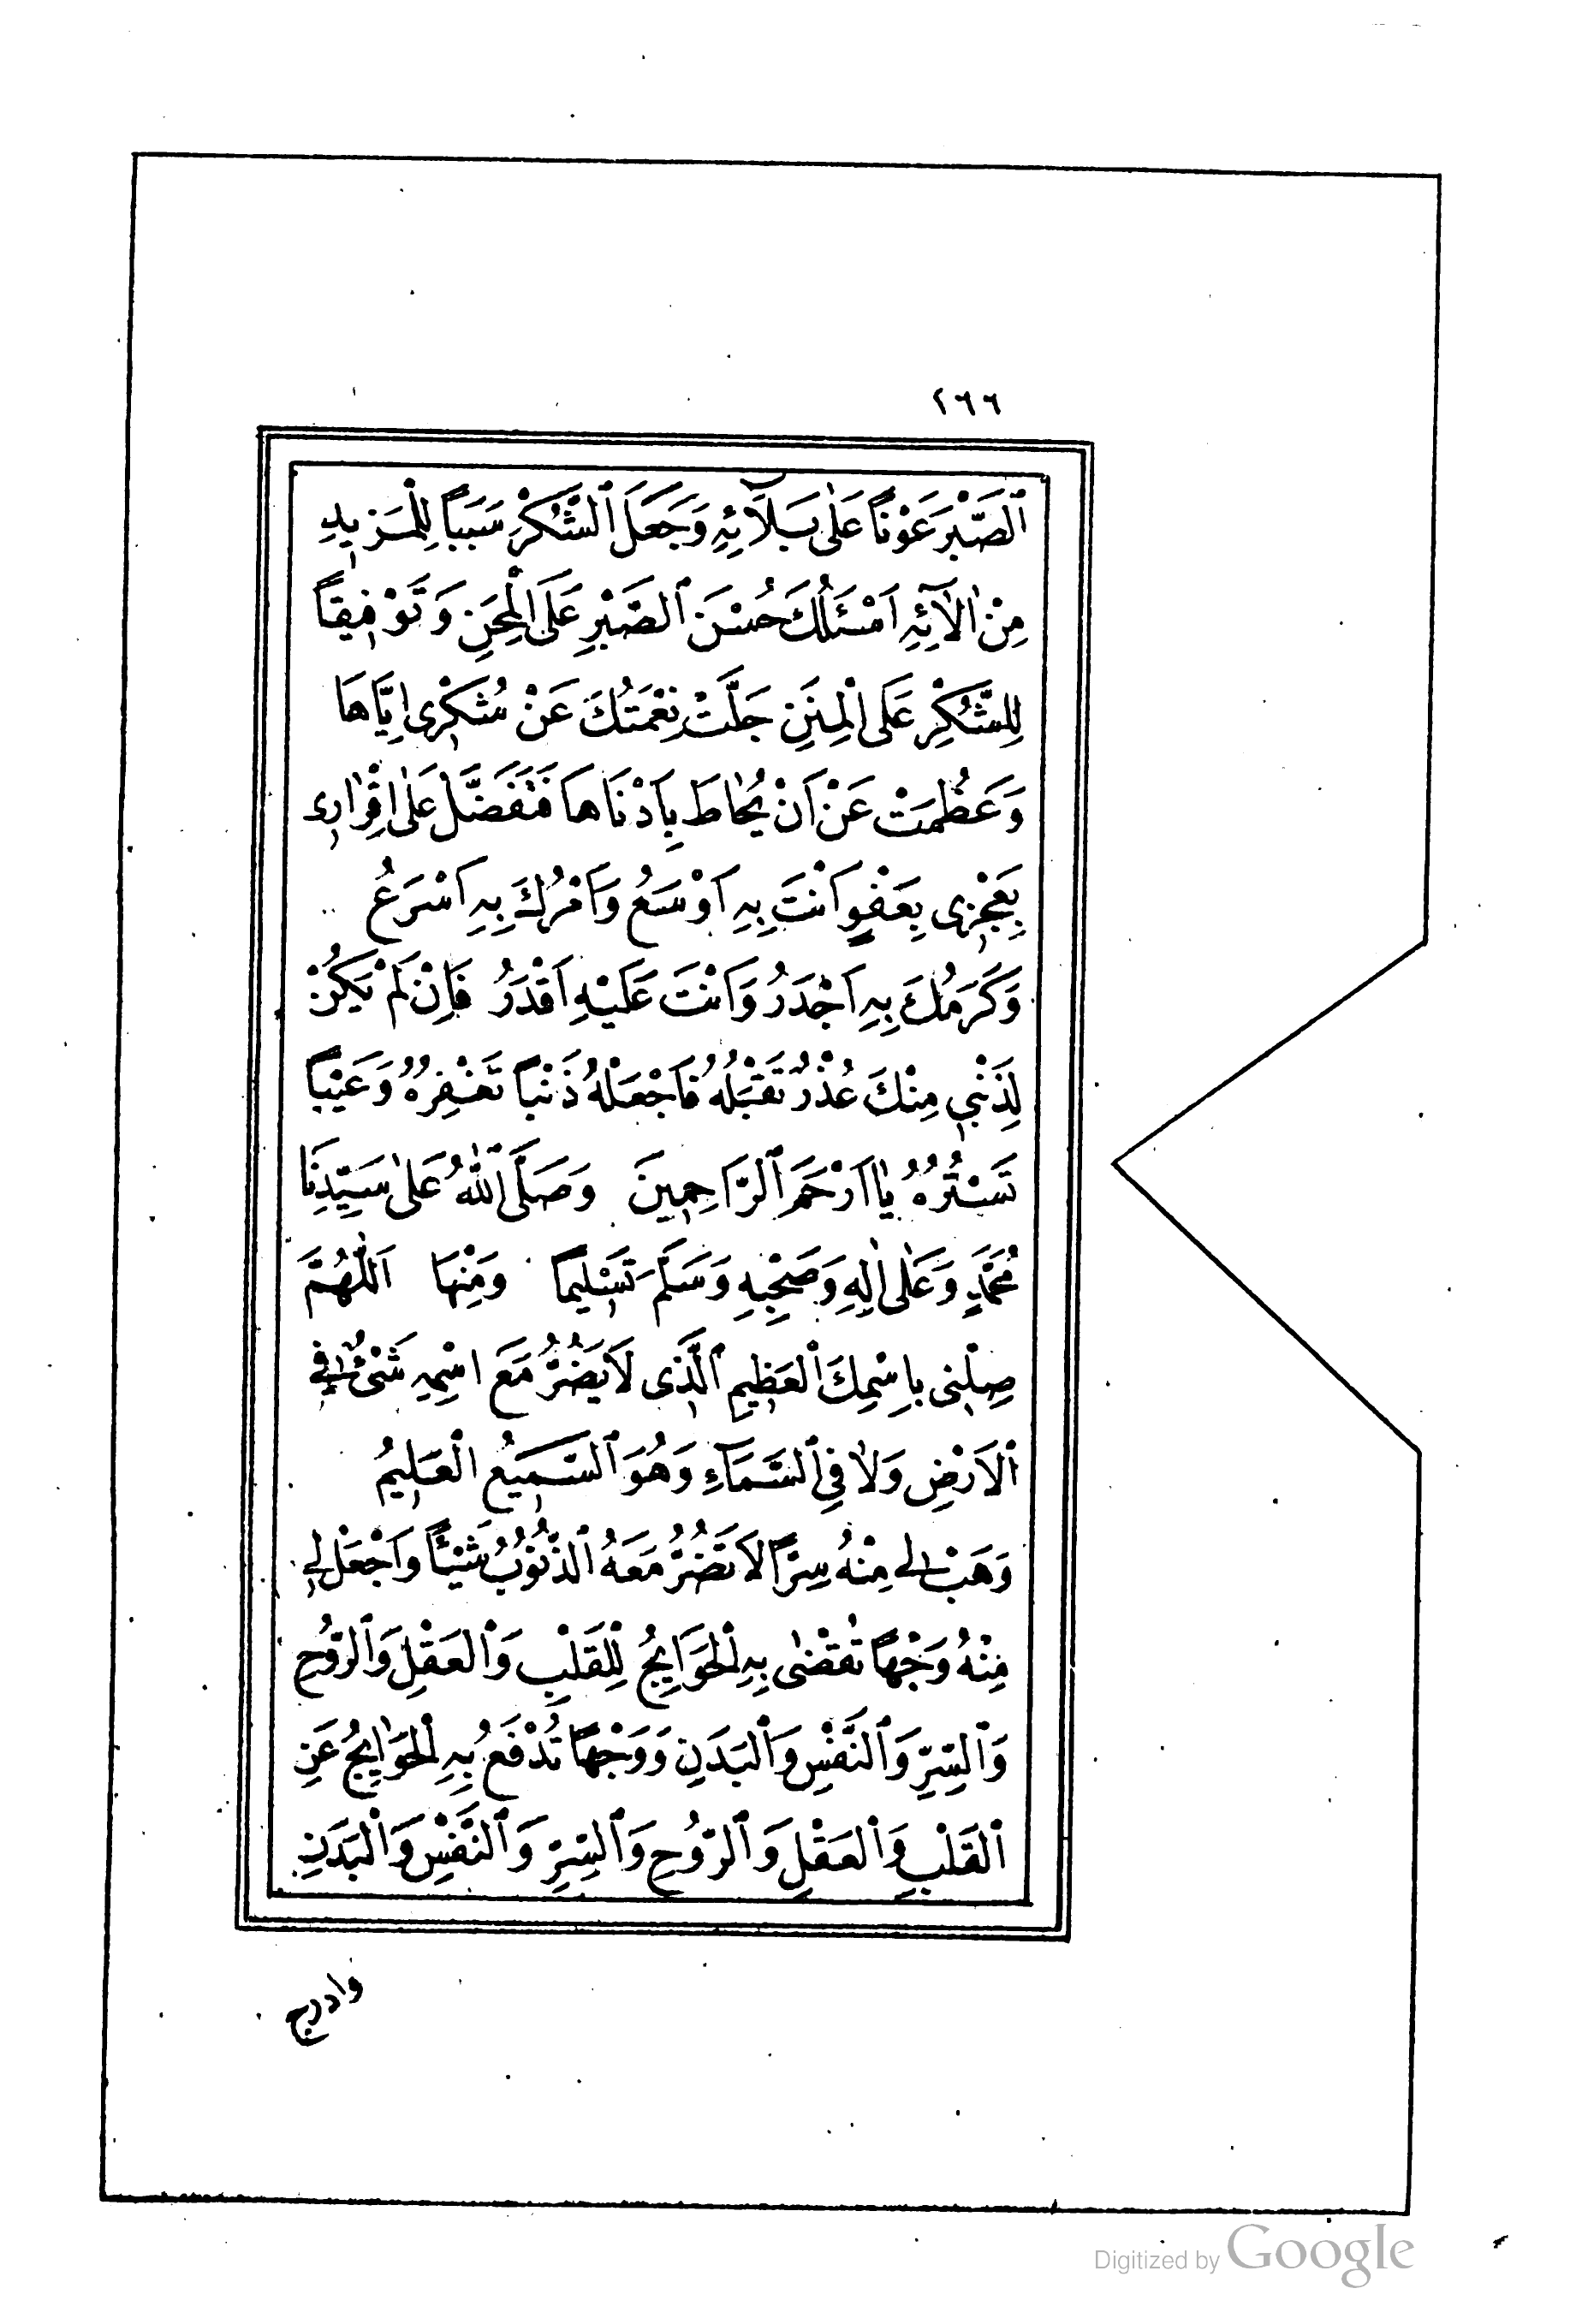 ٢٦٦
ٱلصَّبْرَ عَوْنًا عَلٰى بَلَآئِهِ وَجَعَلَ ٱلشُّكْرَ سَبَبًا لِلْمَزِيدِ
مِنْ اٰلَآئِهِ اَسْئَلُكَ حُسْنَ ٱلصَّبْرِ عَلَى ٱلْمِحَنِ وَتَوْفِيقًا
لِلشُّكْرِ عَلَى ٱلْمِنَنِ جَلَّتْ نِعْمَتُكَ عَنْ شُكْرِى اِيَّاهَا
وَعَظُمَتْ عَنْ اَنْ يُحَاطَ بِاَدْنَاهَا فَتَفَضَّلْ عَلٰى اِقْرَارِى
بِعَجْزِى بِعَفْوٍ اَنْتَ بِهِ اَوْسَعُ وَاَمْرُكَ بِهِ اَسْرَعُ
وَكَرَمُكَ بِهِ اَجْدَرُ وَاَنْتَ عَلَيْهِ اَقْدَرُ فَاِنْ لَمْ يَكُنْ
لِذَنْبِى مِنْكَ عُذْرٌ تَقْبَلُهُ فَاجْعَلْهُ ذَنْبًا تَغْفِرُهُ وَعَيْبًا
تَسْتُرُهُ يَا اَرْحَمَ ٱلرَّاحِمِينَ وَصَلَّى ٱللّٰهُ عَلٰى سَيِّدِنَا
مُحَمَّدٍ وَعَلٰى اٰلِهِ وَصَحْبِهِ وَسَلَّمَ تَسْلِيمًا وَمِنْهَا اَللّٰهُمَّ
صِلْنِى بِاسْمِكَ ٱلْعَظِيمِ ٱلَّذِى لَا يَضُرُّ مَعَ اسْمِهِ شَىْءٌ فِى
ٱلْاَرْضِ وَلَا فِى ٱلسَّمَآءِ وَهُوَ ٱلسَّمِيعُ ٱلْعَلِيمُ
وَهَبْ لِى مِنْهُ سِرًّا لَا تَضُرُّ مَعَهُ ٱلذُّنُوبُ شَيْئًا وَاجْعَلْ لِى
مِنْهُ وَجْهًا تُقْضٰى بِهِ ٱلْحَوَايِجُ لِلْقَلْبِ وَٱلْعَقْلِ وَٱلرُّوحِ
وَٱلسِّرِّ وَٱلنَّفْسِ وَٱلْبَدَنِ وَوَجْهًا تُدْفَعُ بِهِ ٱلْحَوَايِجُ عَنِ
ٱلْقَلْبِ وَٱلْعَقْلِ وَٱلرُّوحِ وَٱلسِّرِّ وَٱلنَّفْسِ وَٱلْبَدَنِ
وادرج
Digitized by Google